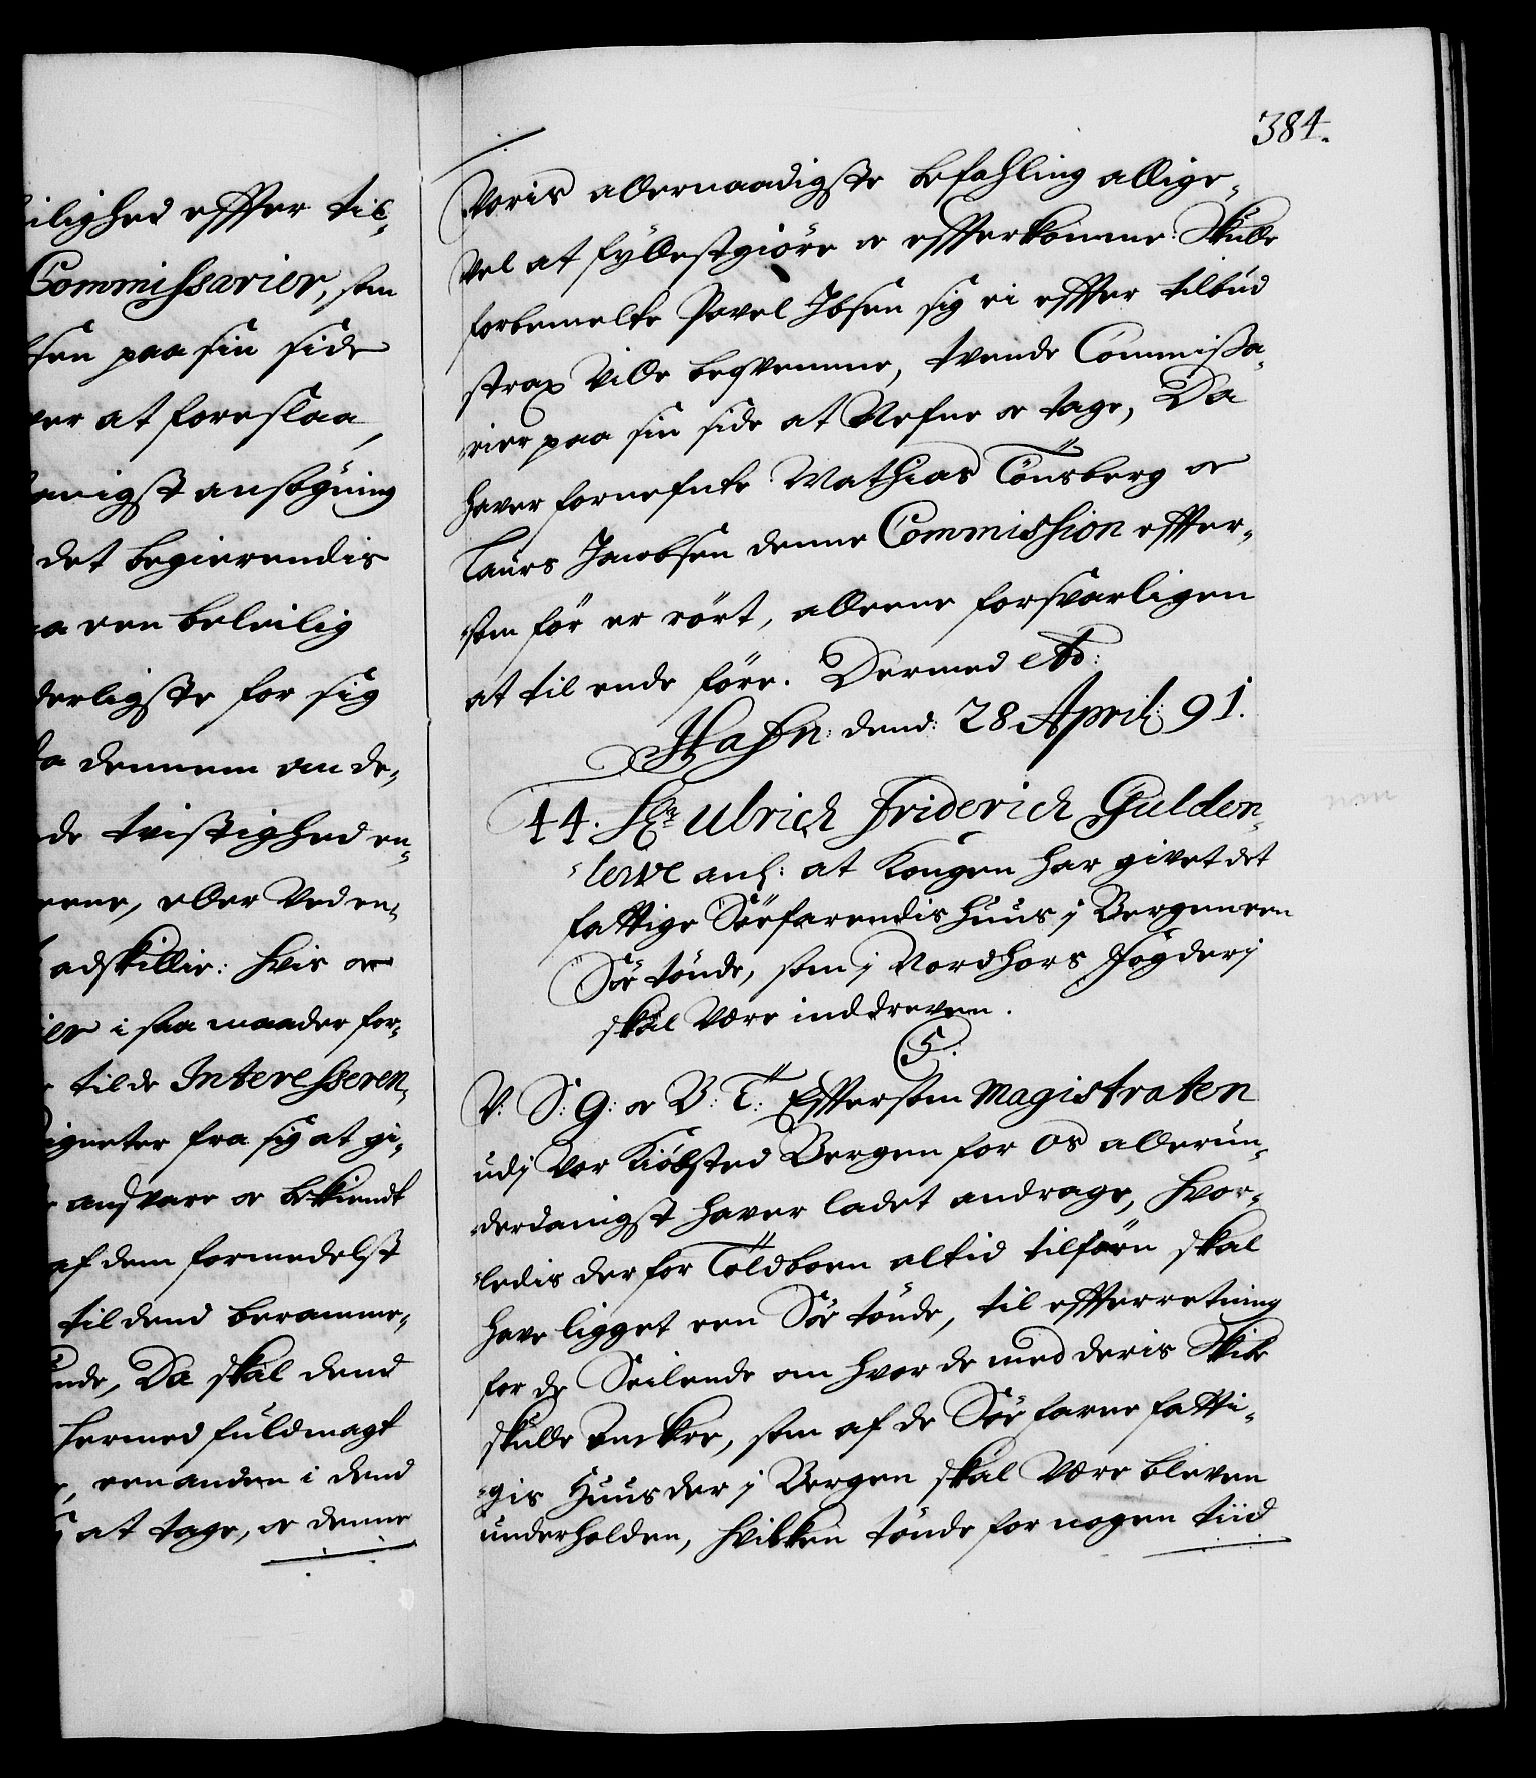 ilighed effter til-
Commissarier, som
sen paa sin side
er at foreslaa,
danigst ansøgning
det begierendis
a een beleilig
derligste for sig
da dennem om de,
de tvistigheden-
eene, eller ved en-
adskillie: hvis oc
i saa maader for-
tilde Interesseren-
igneter fra sig at gi-
andsvare oc bekiendt
af dem formedelst
til dend beramme-
unde, Da skal dend
hermed fuldmagt
, een anden i dend
at tage, oc denne
384.
Voris allernaadigste befahling allige-
vel at fyllestgiöre oc effterkomme: Skulle
forbemelte Povel Ibsen sig ei effter tilbud
strax ville beqvemme, tvende Commissa-
rier paa sin side at Nefne oc tage, Da
haver fornefnte Mathias Tönsberg oc
Laurs Jacobsen denne Commission effter-
som för er rört, alleene forsvarligen
at til ende före. Dermed etc:
Hafn: dend: 28 April: 91.
44. Ulrich Friderich Gulden-
-lewe anl: at Kongen har givet det
fattige Söefarendis Huus j Bergen een
Söe tönde, som j Nordhors Fögderj
skal være inddreven.
C5.
V: S: G: oc B: T: Efftersom Magistraten
udj vor Kiöbsted Bergen for os allerun-
derdanigst haver ladet andrage, hvor-
ledis der for Toldboen altid tilforn skal
have ligget een Söe tönde, til effterretning
for de Seilende om hvor de med deris Skibe
skulle anckre, som af de Söefarne fatti-
gis Huus der j Bergen skal være bleven
underholden, hvilken tönde for nogen tiid